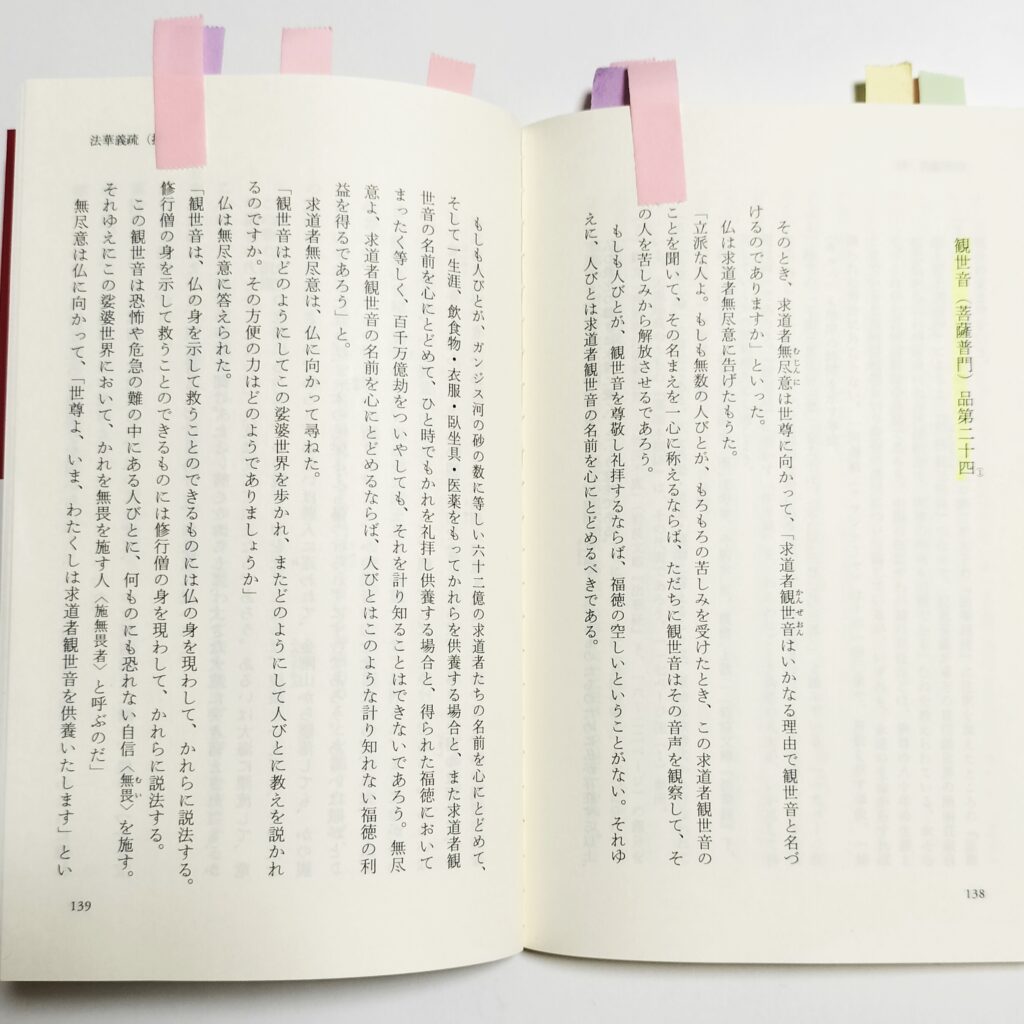 観世音（菩薩普門）品第二十四
そのとき、求道者無尽意は世尊に向かって、「求道者観世音はいかなる理由で観世音と名づ
けるのでありますか」といった。
仏は求道者無尽意に告げたもうた。
「立派な人よ。もしも無数の人びとが、もろもろの苦しみを受けたとき、この求道者観世音の
ことを聞いて、その名まえを一心に称えるならば、ただちに観世音はその音声を観察して、そ
の人を苦しみから解放させるであろう。
もしも人びとが、観世音を尊敬し礼拝するならば、福徳の空しいということがない。それゆ
えに、人びとは求道者観世音の名前を心にとどめるべきである。
138
法華義疏
もしも人びとが、ガンジス河の砂の数に等しい六十二億の求道者たちの名前を心にとどめて、
そして一生涯、飲食物・衣服・臥坐具・医薬をもってかれらを供養する場合と、また求道者観
世音の名前を心にとどめて、ひと時でもかれを礼拝し供養する場合と、得られた福徳において
まったく等しく、百千万億劫をついやしても、それを計り知ることはできないであろう。無尽
意よ、求道者観世音の名前を心にとどめるならば、人びとはこのような計り知れない福徳の利
益を得るであろう」と。
求道者無尽意は、仏に向かって尋ねた。
「観世音はどのようにしてこの娑婆世界を歩かれ、またどのようにして人びとに教えを説かれ
るのですか。その方便の力はどのようでありましょうか」
仏は無尽意に答えられた。
「観世音は、仏の身を示して救うことのできるものには仏の身を現わして、かれらに説法する。
修行僧の身を示して救うことのできるものには修行僧の身を現わして、かれらに説法する。
この観世音は恐怖や危急の難の中にある人びとに、何ものにも恐れない自信〈無畏〉を施す。
それゆえにこの娑婆世界において、かれを無畏を施す人〈施無畏者〉と呼ぶのだ」
無尽意は仏に向かって、「世尊よ、いま、わたくしは求道者観世音を供養いたします」とい
139